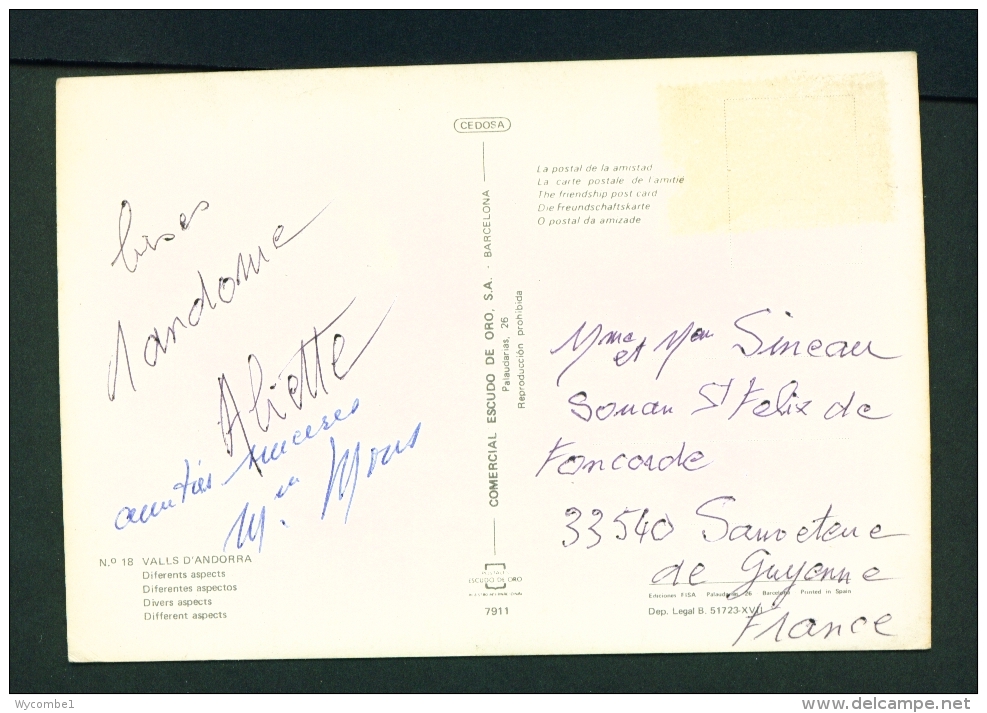 CEDOSA
La postal de la amistad
La carte postale de l'amitié
The friendship post card
Die Freundschaftskarte
O postal da amizade
bises
d'andorre
Aliette
amitiés sinceres
COMERCIAL ESCUDO DE ORO, S.A. - BARCELONA
Palaudarias, 26
Reproducción prohibida
Mme et Mr Sineau
St Felix de
Foncaude
33540 Sauveterre
de Guyenne
France
N.º 18 VALLS D'ANDORRA
Diferents aspects
Diferentes aspectos
Divers aspects
Different aspects
ESCUDO DE ORO
7911
Ediciones FISA Palaudarias, 26 Barcelona Printed in Spain
Dep. Legal B. 51723-XVII
Wycombe1
delcampe.net